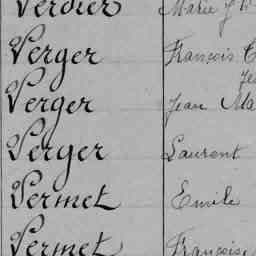 Verdier Marie J
Verger François
Verger Jean Ma
Verger Laurent
Vermet Emile
Vermet Françoise